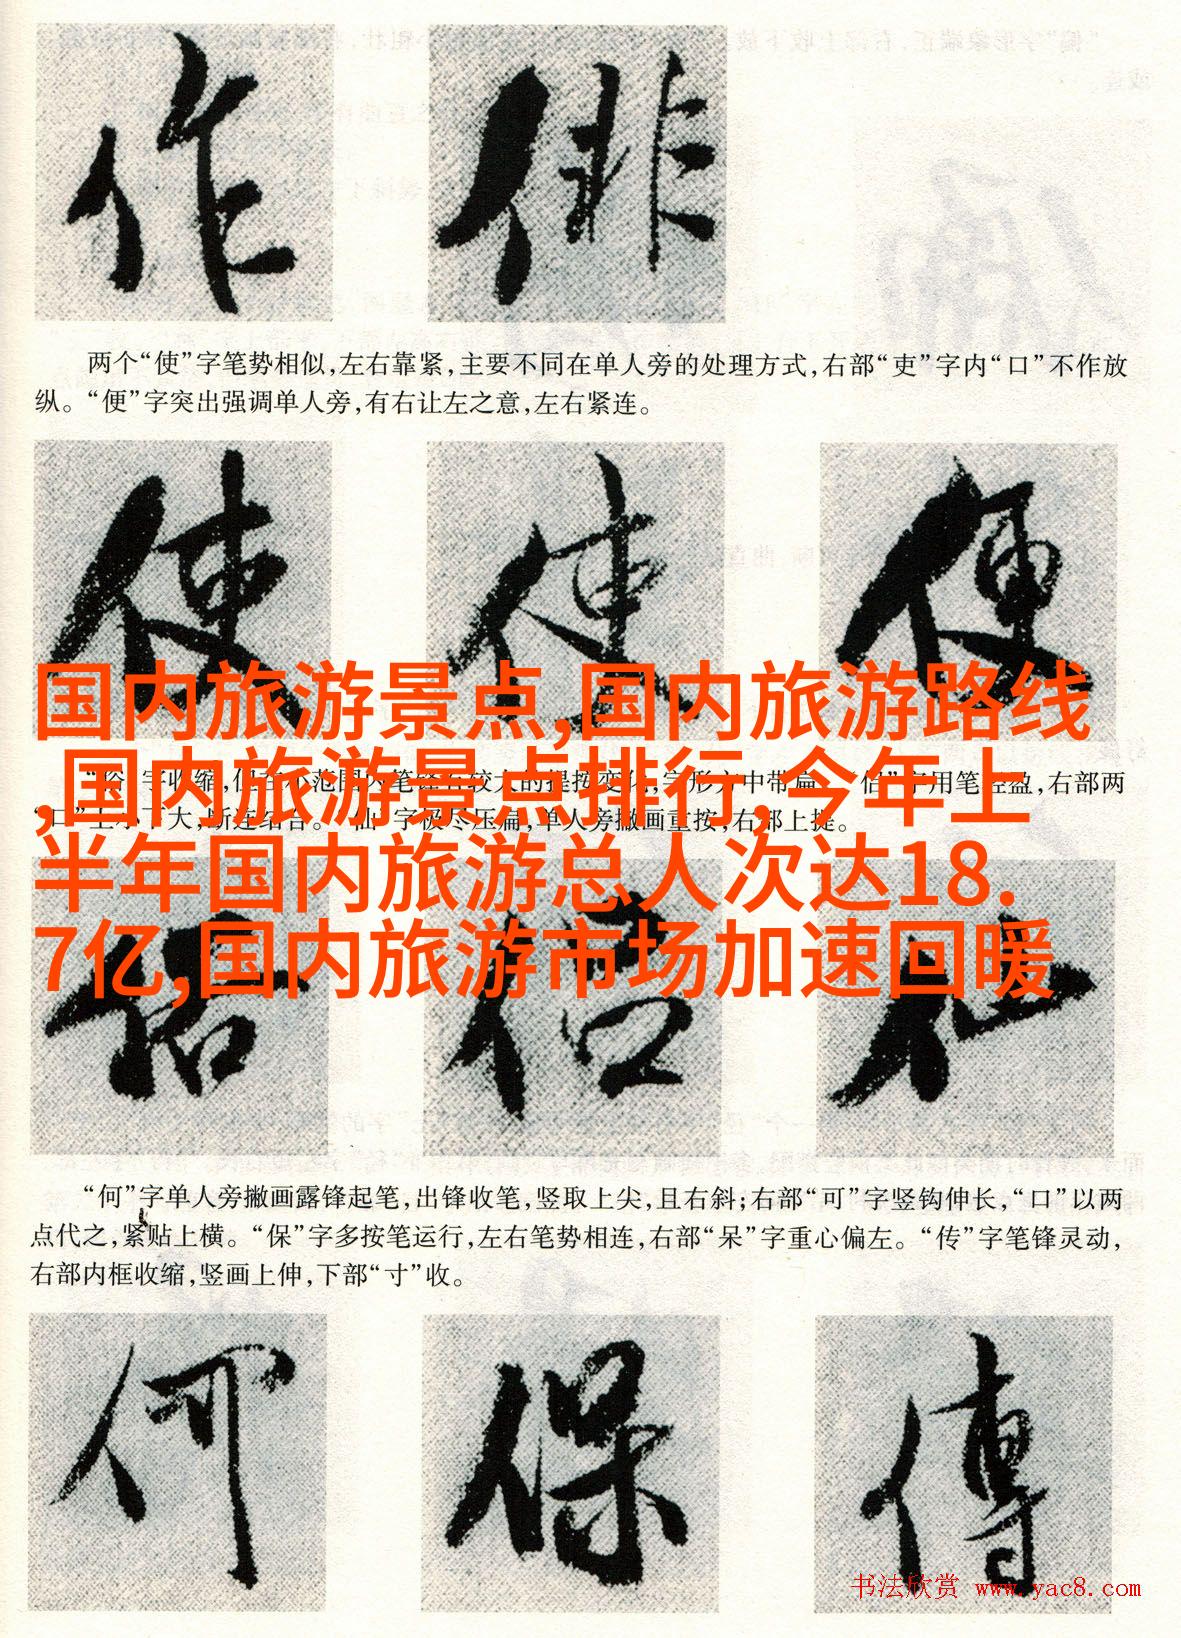 作 俳
两个“使”字笔势相似,左右靠紧,主要不同在单人旁的处理方式,右部“吏”字内“口”不作放
纵。“便”字突出强调单人旁,有右让左之意,左右紧连。
使 使 便
国内旅游景点,国内旅游路线
,国内旅游景点排行,今年上
半年国内旅游总人次达18.
7亿,国内旅游市场加速回暖
字收缩,但在小范围内笔锋有较大的提按变化,字形方中带扁。“侣”字用笔轻盈,右部两
“口”上小下大,断连结合。“仙”字极尽压扁,单人旁撇画重按,右部上提。
侣 仙
“何”字单人旁撇画露锋起笔,出锋收笔,竖取上尖,且右斜;右部“可”字竖钩伸长,“口”以两
点代之,紧贴上横。“保”字多按笔运行,左右笔势相连,右部“呆”字重心偏左。“传”字笔锋灵动,
右部内框收缩,竖画上伸,下部“寸”收。
何 保 傳
书法欣赏 www.yac8.com